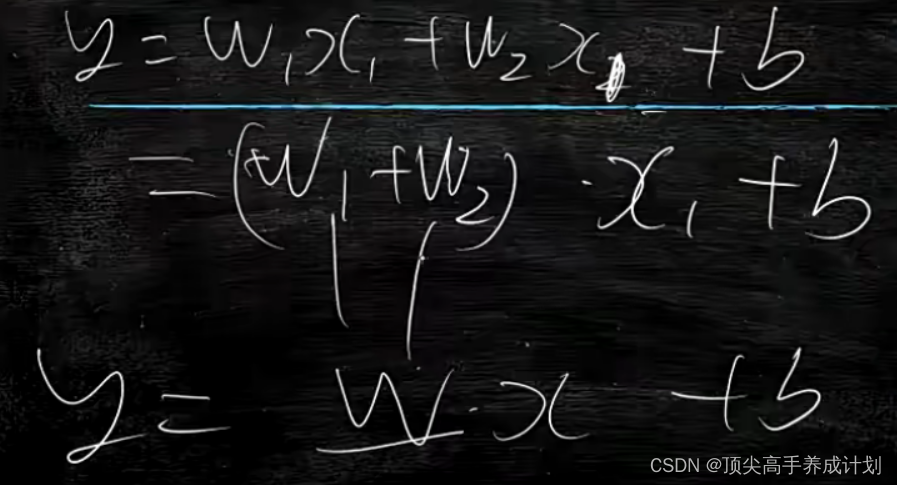 y = w₁x₁ + w₂x₁ + b
= (w₁ + w₂) · x₁ + b
y = w · x + b
CSDN @顶尖高手养成计划